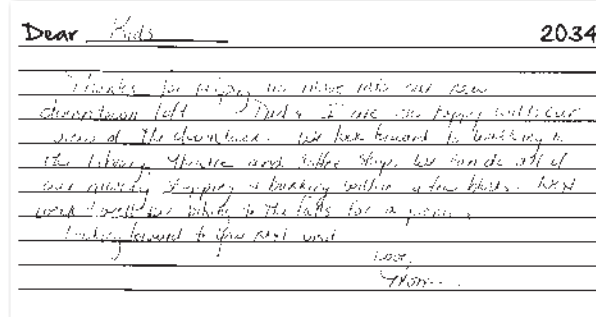 Dear Kids 2034
Thanks for helping us move into our new
downtown loft. Dad & I are so happy with our
view of the downtown. We look forward to walking to
the library, theatre and coffee shops. We can do all of
our grocery shopping & banking within a few blocks. Next
week we'll be biking to the falls for a picnic.
Looking forward to your next visit
Love,
Mom